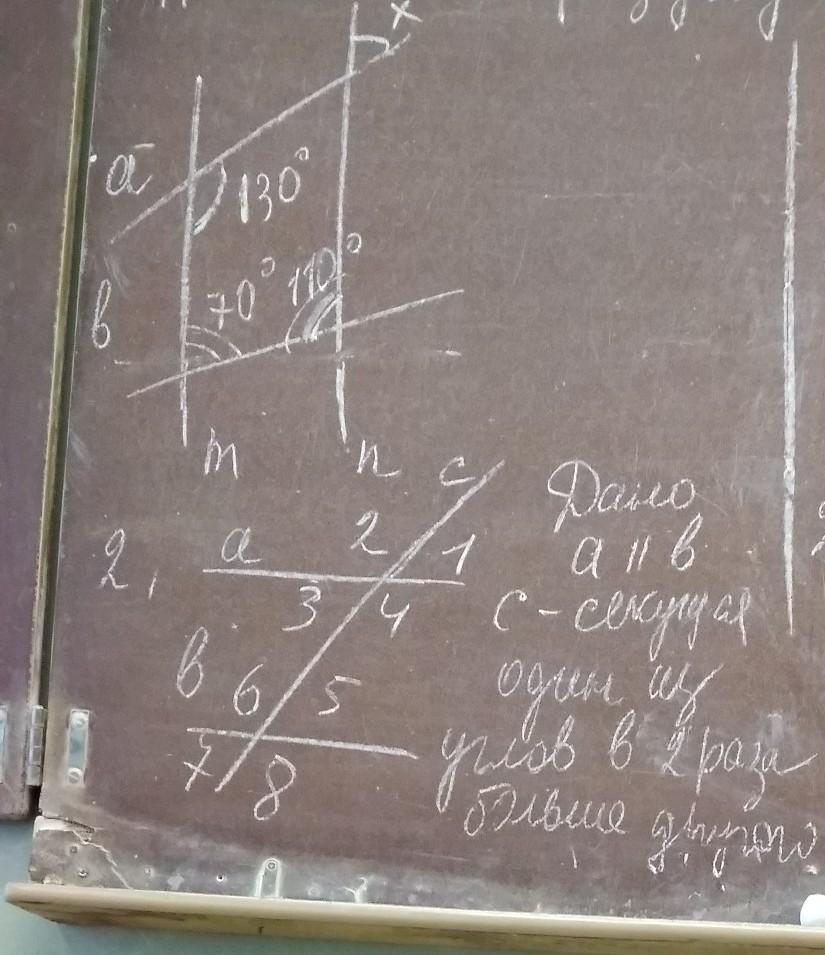 x
a
130°
70° 110°
b
m n
2, a 2 c 1
3 4
b 6 5
7 8
Дано
a || b
c - секущая
один из
углов в 2 раза
больше другого